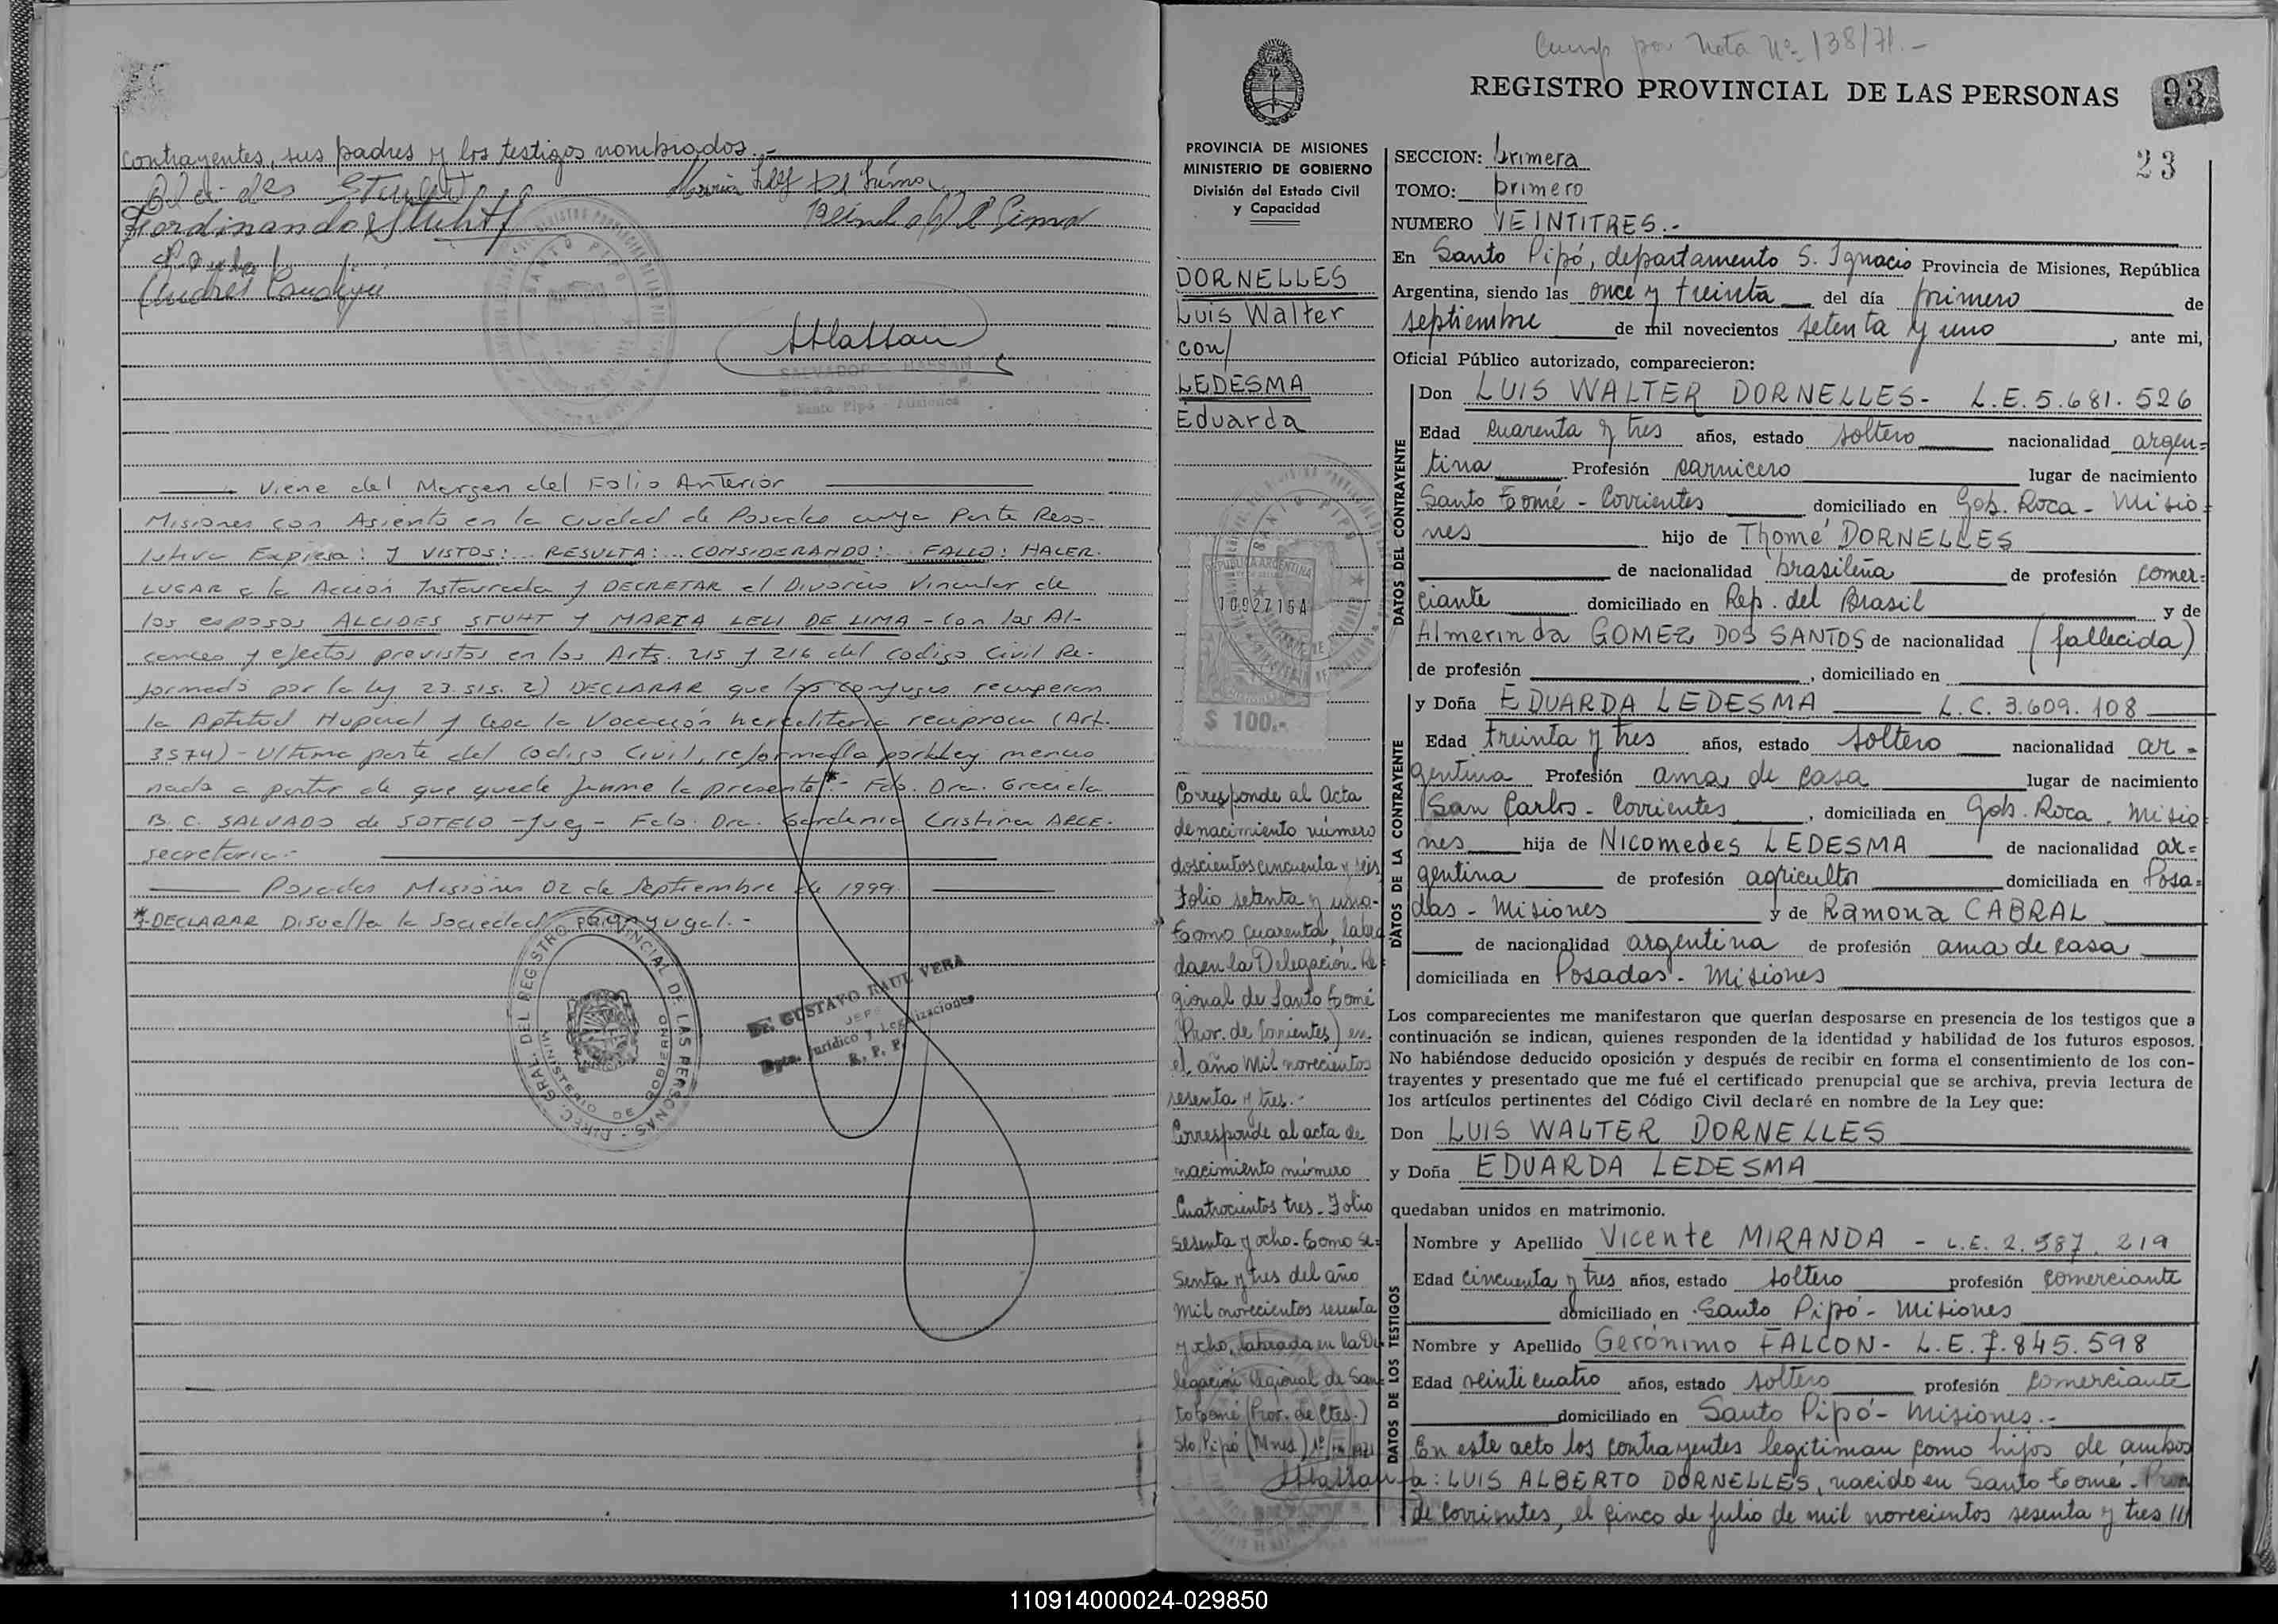 contrayentes, sus padres y los testigos nombrados.-
Alcides Stuht
Maria Lely De Lima
Ferdinando Stuht
SALVADOR HASSAN
Santo Pipó - Misiones
Viene del Margen del Folio Anterior
Misiones con Asiento en la Ciudad de Posadas cuya Parte Reso-
lutiva Expresa: Y VISTOS:.. RESULTA:.. CONSIDERANDO:.. FALLO: HACER
LUGAR a la Acción Instaurada y DECRETAR el Divorcio Vincular de
los esposos ALCIDES STUHT Y MARIA LELI DE LIMA - Con los Al-
cances y efectos previstos en los Arts. 215 y 216 del Codigo Civil Re-
formado por la ley 23.515. 2) DECLARAR que los conyuges recuperan
la Aptitud Nupcial y cesa la Vocación hereditaria reciproca (Art.
3574) - Ultima parte del Codigo Civil, reformado por Ley mencio
nada a partir de que quede firme la presente*.- Fdo. Dra. Graciela
B. C. SALVADO de SOTELO - Juez - Fdo. Dra. Gardenia Cristina ARCE.
secretaria.-
Posadas Misiones 02 de Septiembre de 1999.
*-DECLARAR Disuelta la Sociedad Conyugal.-
DIREC. GRAL. DEL REGISTRO PROVINCIAL DE LAS PERSONAS
MINISTERIO DE GOBIERNO
Dr. GUSTAVO RAUL VERA
JEFE
Dpto. Juridico y Legalizaciones
R. P. P.
Cump por Nota Nº 138/71.-
REGISTRO PROVINCIAL DE LAS PERSONAS
93
23
PROVINCIA DE MISIONES
MINISTERIO DE GOBIERNO
División del Estado Civil
y Capacidad
DORNELLES
Luis Walter
con/
LEDESMA
Eduarda
REPUBLICA ARGENTINA
1092716A
$ 100.-
Corresponde al Acta
de nacimiento número
doscientos cincuenta y seis
Folio setenta y uno-
Tomo cuarenta, labra
da en la Delegación Re
gional de Santo Tomé
(Prov. de Corrientes) en
el año Mil novecientos
sesenta y tres.-
Corresponde al acta de
nacimiento número
Cuatrocientos tres - Folio
sesenta y ocho - Tomo se=
senta y tres del año
mil novecientos sesenta
y ocho, labrada en la De
legación Regional de San
to Tomé (Prov. de Ctes.)
Sto. Pipó (Mnes)
SECCION: primera
TOMO: primero
NUMERO VEINTITRES.-
En Santo Pipó, departamento S. Ignacio Provincia de Misiones, República
Argentina, siendo las once y treinta del día primero de
septiembre de mil novecientos setenta y uno, ante mi,
Oficial Público autorizado, comparecieron:
DATOS DEL CONTRAYENTE
Don LUIS WALTER DORNELLES- L.E. 5.681.526
Edad cuarenta y tres años, estado soltero nacionalidad argen=
tina Profesión carnicero lugar de nacimiento
Santo Tomé - Corrientes domiciliado en Gob. Roca - Misio=
nes hijo de Thomé DORNELLES
de nacionalidad brasileña de profesión comer=
ciante domiciliado en Rep. del Brasil y de
Almerinda GOMEZ DOS SANTOS de nacionalidad (fallecida)
de profesión , domiciliado en
DATOS DE LA CONTRAYENTE
y Doña EDUARDA LEDESMA L.C. 3.609.108
Edad treinta y tres años, estado soltero nacionalidad ar=
gentina Profesión ama de casa lugar de nacimiento
San Carlos - Corrientes, domiciliada en Gob. Roca. Misio
nes hija de Nicomedes LEDESMA de nacionalidad ar=
gentina de profesión agricultor domiciliada en Posa=
das - Misiones y de Ramona CABRAL
de nacionalidad argentina de profesión ama de casa
domiciliada en Posadas - Misiones
Los comparecientes me manifestaron que querían desposarse en presencia de los testigos que a
continuación se indican, quienes responden de la identidad y habilidad de los futuros esposos.
No habiéndose deducido oposición y después de recibir en forma el consentimiento de los con-
trayentes y presentado que me fué el certificado prenupcial que se archiva, previa lectura de
los artículos pertinentes del Código Civil declaré en nombre de la Ley que:
Don LUIS WALTER DORNELLES
y Doña EDUARDA LEDESMA
quedaban unidos en matrimonio.
DATOS DE LOS TESTIGOS
Nombre y Apellido Vicente MIRANDA - L.E. 2.587.219
Edad cincuenta y tres años, estado soltero profesión comerciante
domiciliado en Santo Pipó - Misiones
Nombre y Apellido Geronimo FALCON- L.E. 7.845.598
Edad veinticuatro años, estado soltero profesión comerciante
domiciliado en Santo Pipó - Misiones.-
En este acto los contrayentes legitiman como hijos de ambos
a: LUIS ALBERTO DORNELLES, nacido en Santo Tomé - Prov
de Corrientes, el cinco de julio de mil novecientos sesenta y tres ///
110914000024-029850